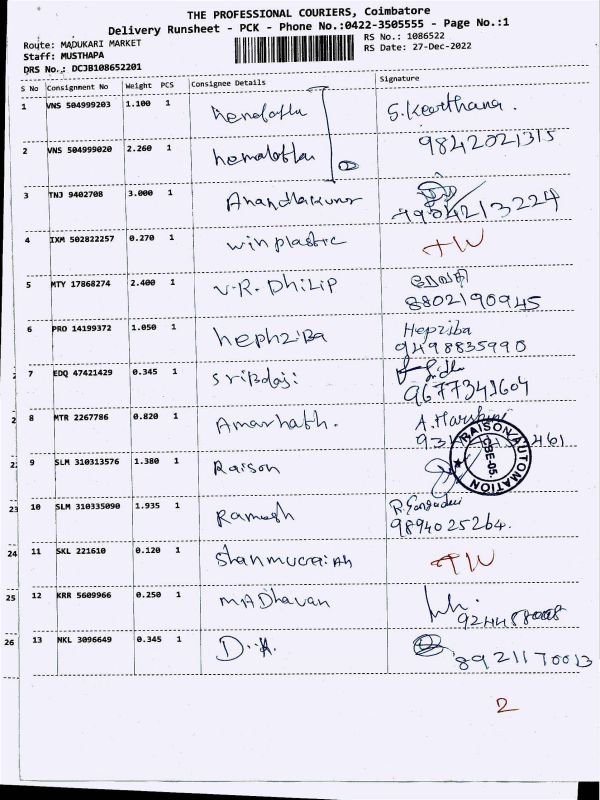 THE PROFESSIONAL COURIERS, Coimbatore
Delivery Runsheet - PCK - Phone No.:0422-3505555 - Page No.:1
Route: MADUKARI MARKET RS No.: 1086522
Staff: MUSTHAPA RS Date: 27-Dec-2022
DRS No.: DCJB108652201
S No Consignment No Weight PCS Consignee Details Signature
1 VNS 504999203 1.100 1 S. Keerthana.
2 VNS 504999020 2.260 1 hemalatha 9842021315
3 TNJ 9402708 3.000 1
4 IXM 502822257 0.270 1 winplastic
5 MTY 17868274 2.400 1 V.R. Philip ரேவதி
8802190945
6 PRO 14199372 1.050 1 hephziBa Hepziba
9498835990
7 EDQ 47421429 0.345 1 Sri Balaji
9677341604
8 MTR 2267786 0.820 1 Amarnath.
9 SLM 310313576 1.380 1 Raison RAISON AUTOMATION
CBE-05.
10 SLM 310335090 1.935 1 Ramesh
9894025264.
11 SKL 221610 0.120 1
12 KRR 5609966 0.250 1 MADhavan
13 NKL 3096649 0.345 1 8921170013
2